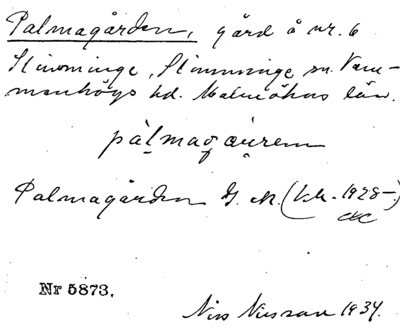 Palmagården, gård å nr. 6
Stävminge, Slimminge sn. Vem-
menhögs hd. Malmöhus län.
Palmagården G. M. (kh. 1928-)
Nr 5873.
Nils Nilsson 1934.